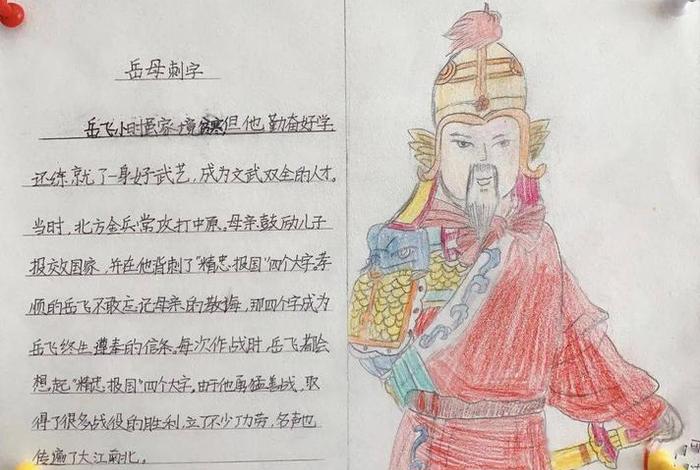 岳母刺字
岳飞小时候家境贫寒但他勤奋好学
还练就了一身好武艺，成为文武双全的人才。
当时，北方金兵常攻打中原。母亲鼓励儿子
报效国家，并在他背刺了"精忠报国"四个大字。孝
顺的岳飞不敢忘记母亲的教诲，那四个字成为
岳飞终生遵奉的信条。每次作战时，岳飞都会
想起"精忠报国"四个大字。由于他勇猛善战，取
得了很多战役的胜利，立了不少功劳，名声也
传遍了大江南北。